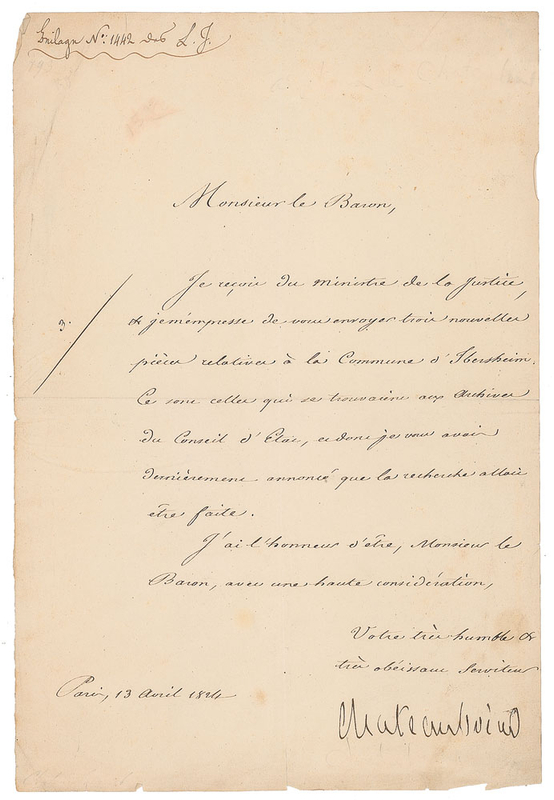 Beilage No: 1442 des L. J.
Monsieur le Baron,
Je reçois du ministre de la Justice,
3.
& je m'empresse de vous envoyer trois nouvelles
pièces relatives à la Commune d'Ibersheim.
Ce sont celles qui se trouvaient aux Archives
du Conseil d'Etat, et dont je vous avais
dernièrement annoncé que la recherche allait
être faite.
J'ai l'honneur d'être, Monsieur le
Baron, avec une haute considération,
Votre très humble &
très obéissant Serviteur
Paris, 13 Avril 1824
Chateaubriand